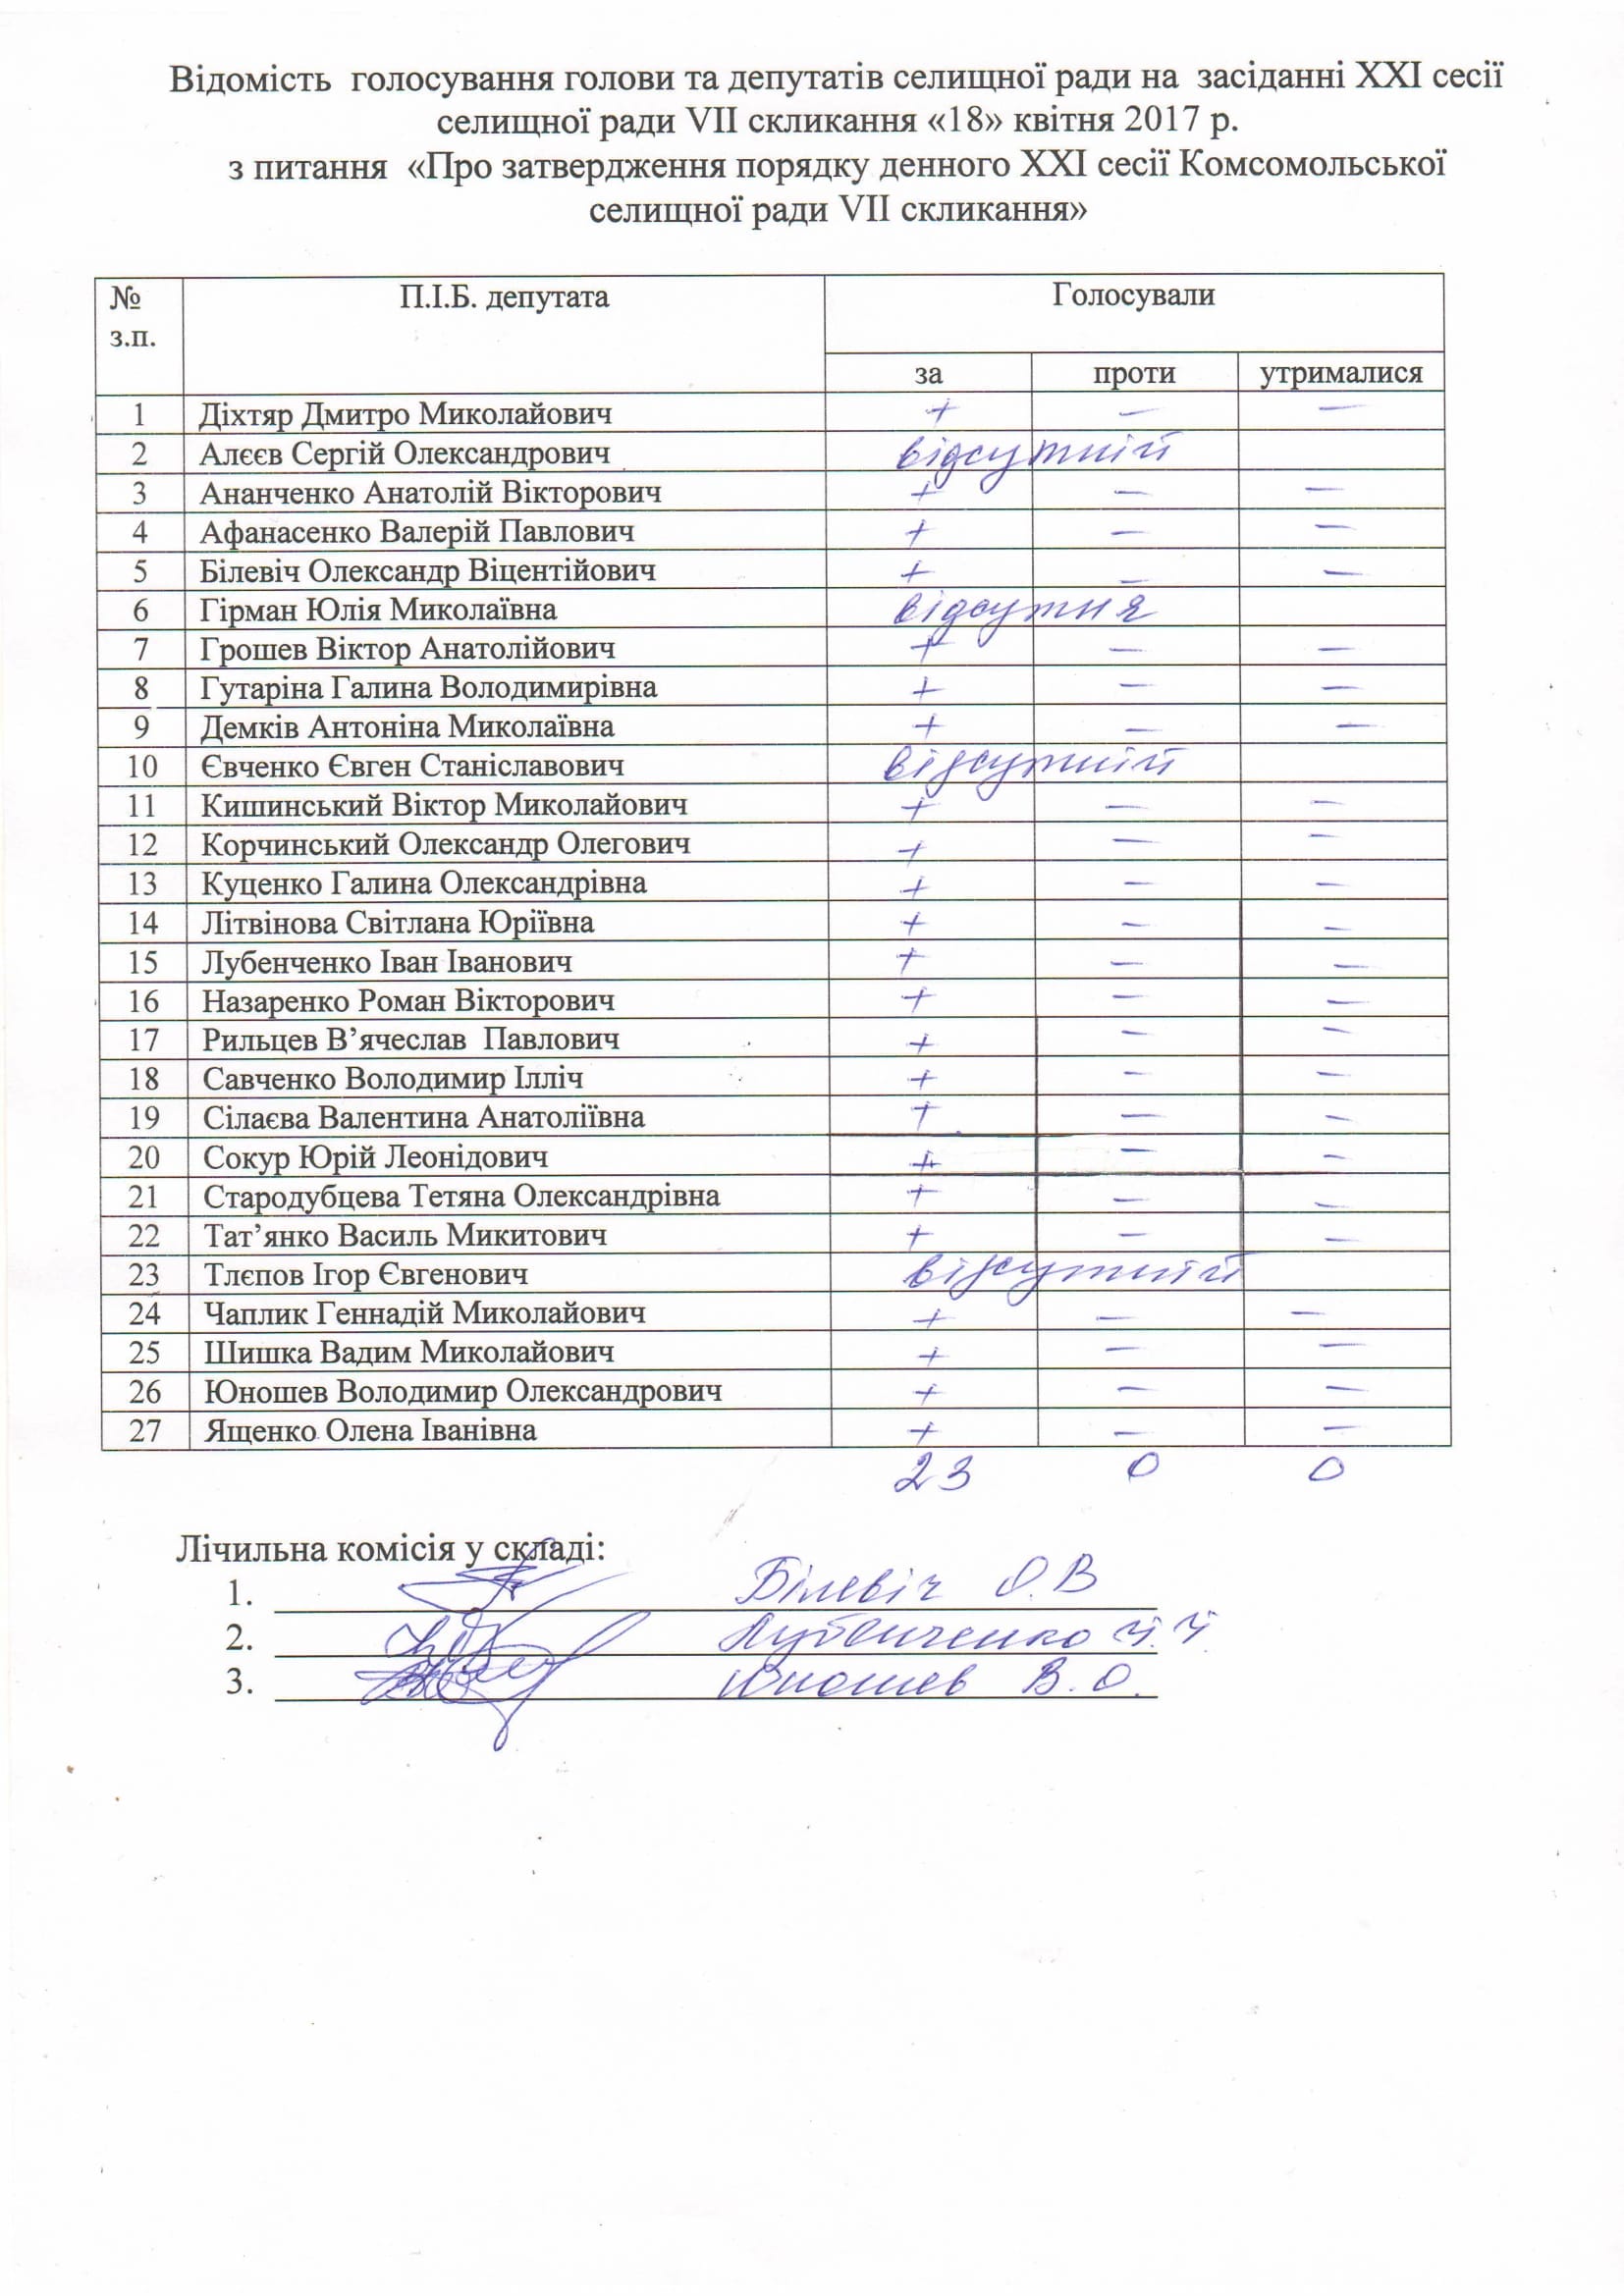 Відомість голосування голови та депутатів селищної ради на засіданні XXI сесії
селищної ради VII скликання «18» квітня 2017 р.
з питання «Про затвердження порядку денного XXI сесії Комсомольської
селищної ради VII скликання»
№ з.п. П.І.Б. депутата Голосували
за проти утрималися
1 Діхтяр Дмитро Миколайович + – –
2 Алєєв Сергій Олександрович відсутній
3 Ананченко Анатолій Вікторович + – –
4 Афанасенко Валерій Павлович + – –
5 Білевіч Олександр Віцентійович + – –
6 Гірман Юлія Миколаївна відсутня
7 Грошев Віктор Анатолійович + – –
8 Гутаріна Галина Володимирівна + – –
9 Демків Антоніна Миколаївна + – –
10 Євченко Євген Станіславович відсутній
11 Кишинський Віктор Миколайович + – –
12 Корчинський Олександр Олегович + – –
13 Куценко Галина Олександрівна + – –
14 Літвінова Світлана Юріївна + – –
15 Лубенченко Іван Іванович + – –
16 Назаренко Роман Вікторович + – –
17 Рильцев В’ячеслав Павлович + – –
18 Савченко Володимир Ілліч + – –
19 Сілаєва Валентина Анатоліївна + – –
20 Сокур Юрій Леонідович + – –
21 Стародубцева Тетяна Олександрівна + – –
22 Тат’янко Василь Микитович + – –
23 Тлєпов Ігор Євгенович відсутній
24 Чаплик Геннадій Миколайович + – –
25 Шишка Вадим Миколайович + – –
26 Юношев Володимир Олександрович + – –
27 Ященко Олена Іванівна + – –
23 0 0
Лічильна комісія у складі:
1. Білевіч О.В
2. Лубенченко І.І
3. Юношев В.О.